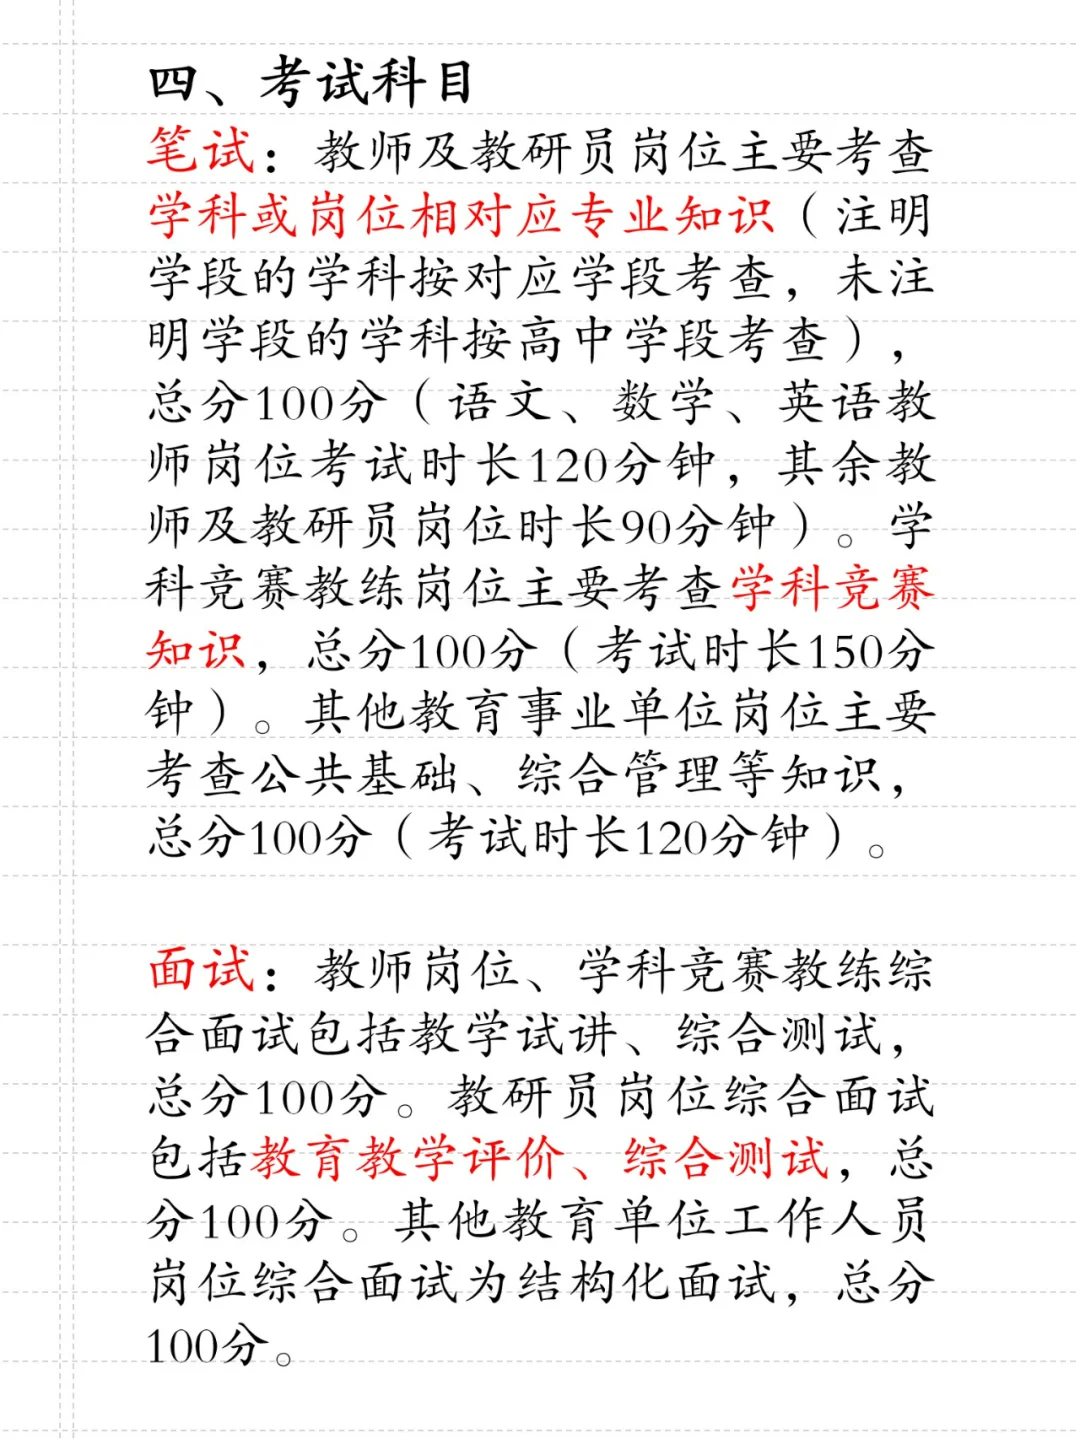 四、考试科目
笔试：教师及教研员岗位主要考查
学科或岗位相对应专业知识（注明
学段的学科按对应学段考查，未注
明学段的学科按高中学段考查），
总分100分（语文、数学、英语教
师岗位考试时长120分钟，其余教
师及教研员岗位时长90分钟）。学
科竞赛教练岗位主要考查学科竞赛
知识，总分100分（考试时长150分
钟）。其他教育事业单位岗位主要
考查公共基础、综合管理等知识，
总分100分（考试时长120分钟）。
面试：教师岗位、学科竞赛教练综
合面试包括教学试讲、综合测试，
总分100分。教研员岗位综合面试
包括教育教学评价、综合测试，总
分100分。其他教育单位工作人员
岗位综合面试为结构化面试，总分
100分。